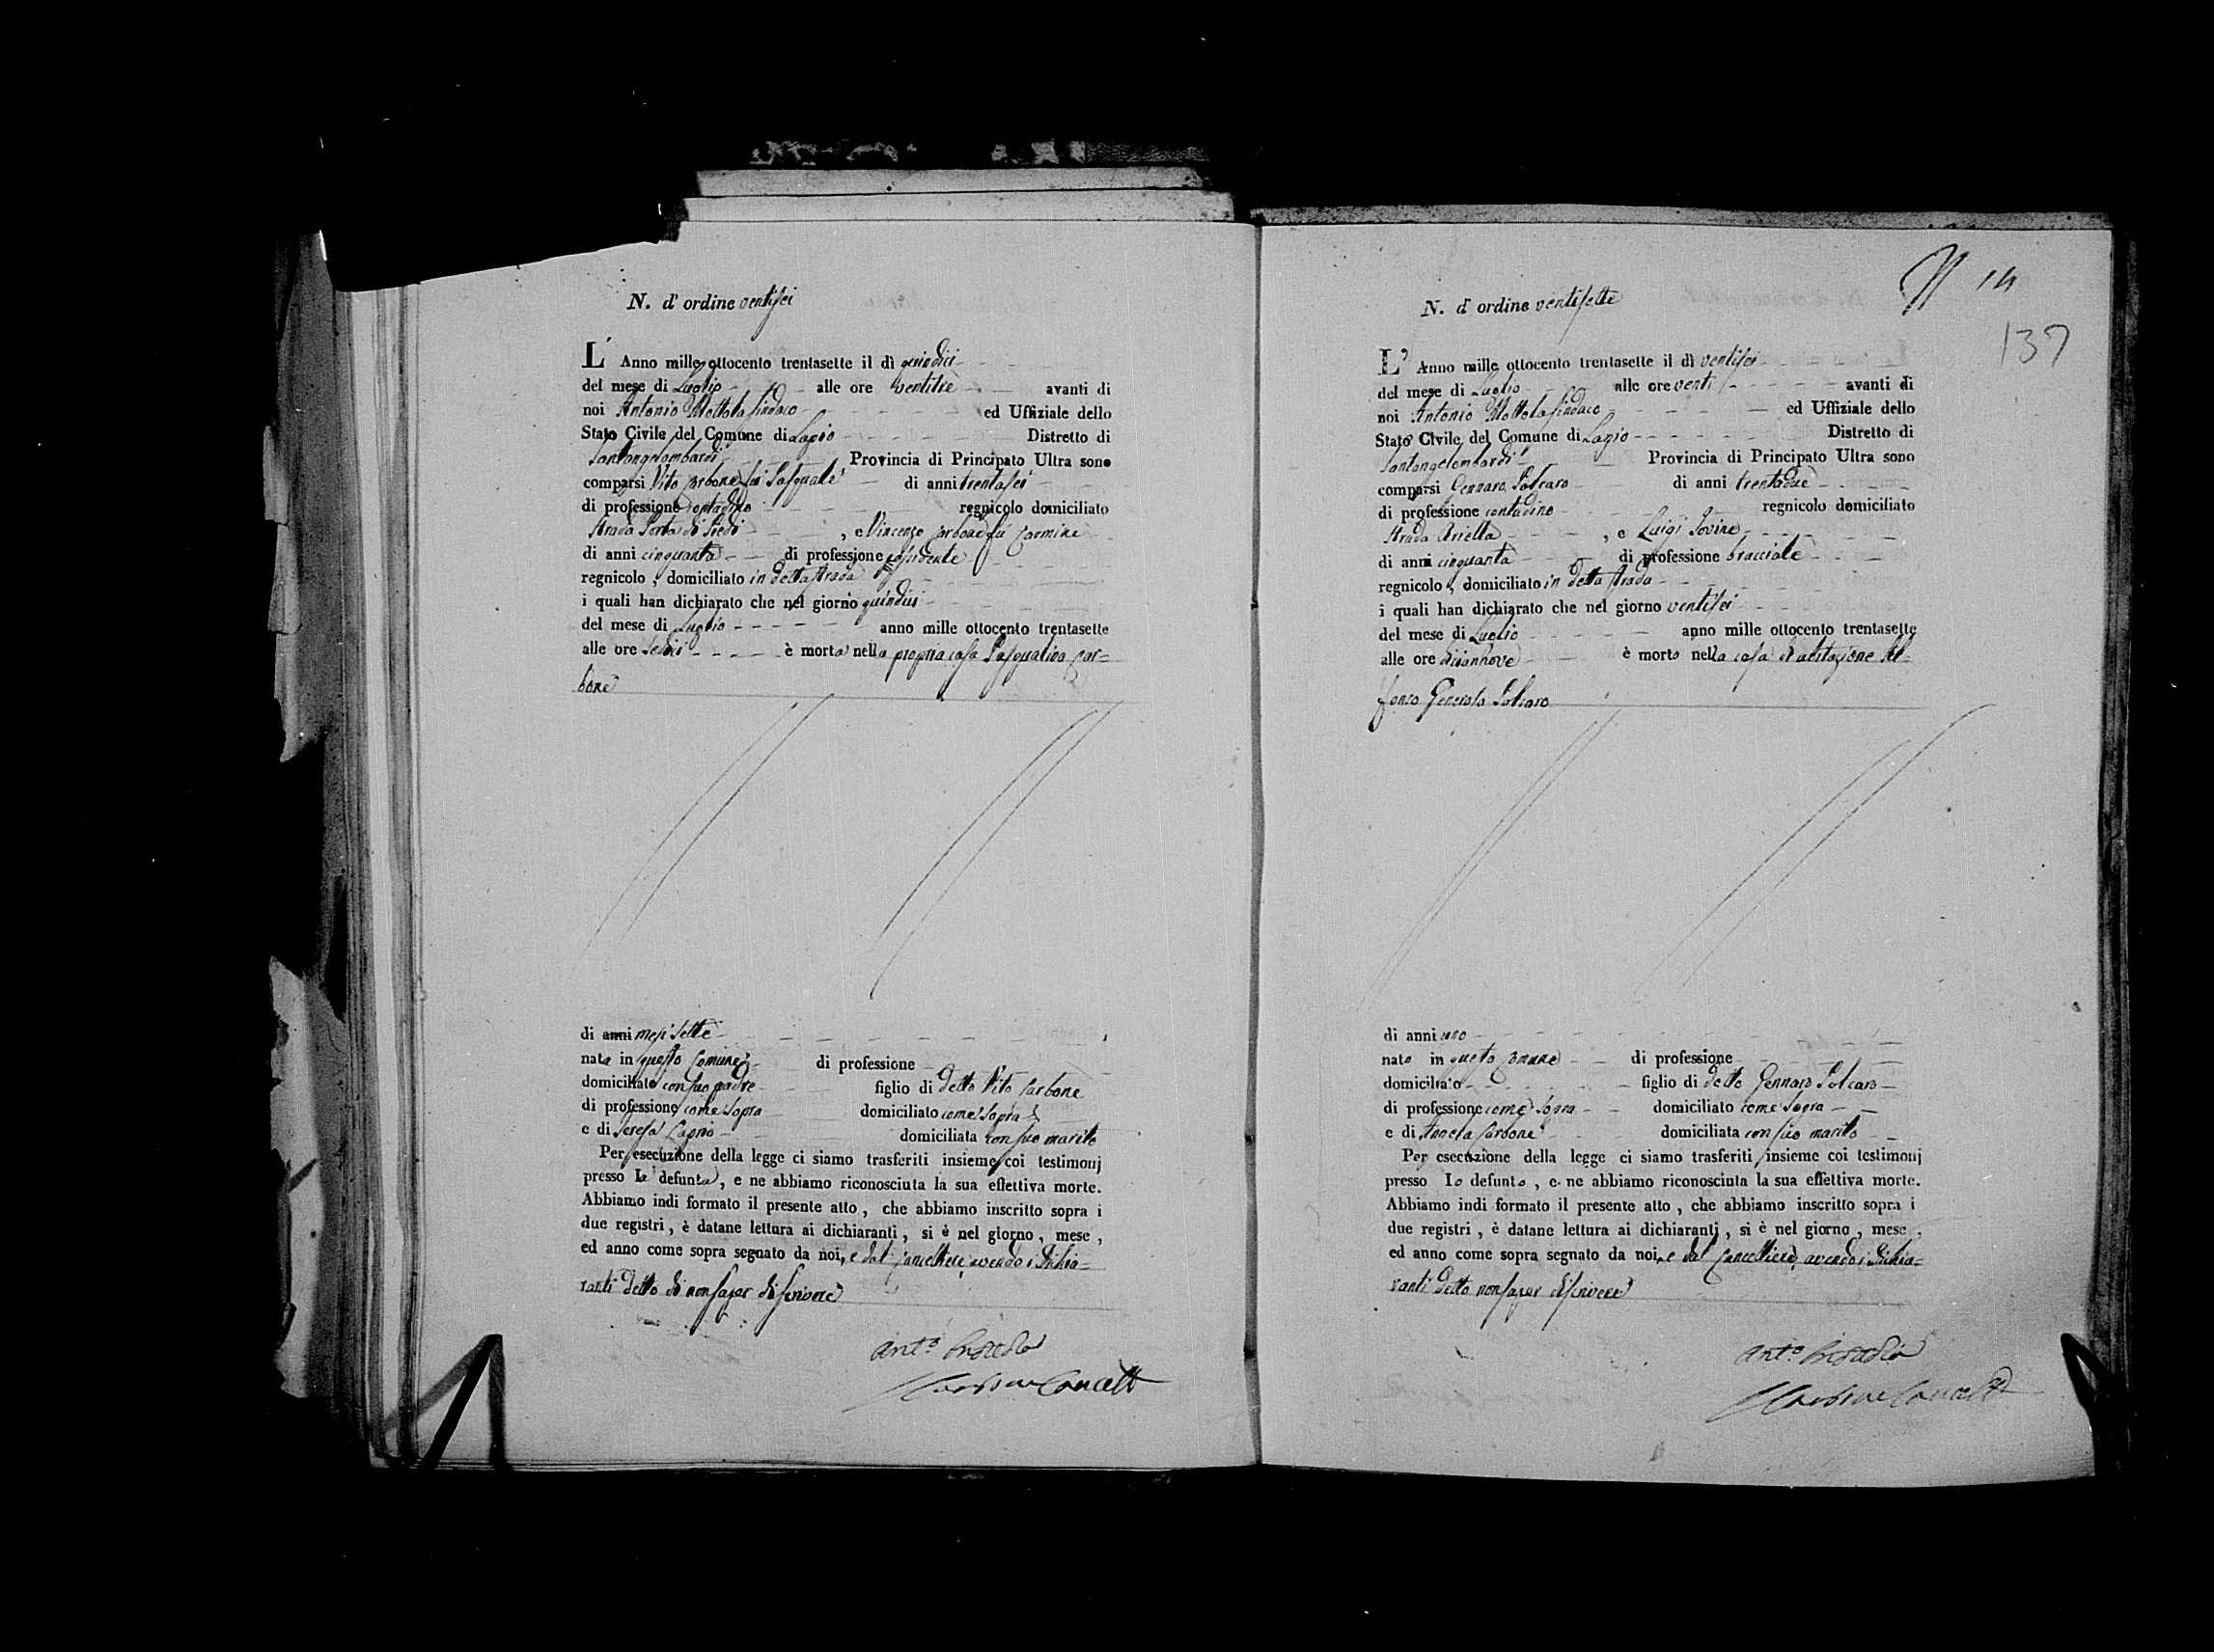 N. d'ordine ventisei
L' Anno mille ottocento trentasette il dì quindici
del mese di Luglio alle ore ventitre avanti di
noi Antonio Mottola Sindaco ed Uffiziale dello
Stato Civile del Comune di Lapio Distretto di
Santangelombardi Provincia di Principato Ultra sono
comparsi Vito Carbone fu Pasquale di anni trentasei
di professione contadino regnicolo domiciliato
Strada Porta di Piedi , e Vincenzo Carbone fu Carmine
di anni cinquanta di professione possidente
regnicolo , domiciliato in detta strada
i quali han dichiarato che nel giorno quindici
del mese di Luglio anno mille ottocento trentasette
alle ore sedici è morta nella propria casa Pasqualina Car=
bone
di anni mesi sette
nata in questo Comune di professione
domiciliato con suo padre figlio di detto Vito Carbone
di professione come sopra domiciliato come sopra
e di Teresa domiciliata con suo marito
Per esecuzione della legge ci siamo trasferiti insieme coi testimonj
presso la defunta , e ne abbiamo riconosciuta la sua effettiva morte.
Abbiamo indi formato il presente atto , che abbiamo inscritto sopra i
due registri , è datane lettura ai dichiaranti , si è nel giorno , mese ,
ed anno come sopra segnato da noi, e dal Cancelliere avendo i dichia=
ranti detto di non saper di scrivere
14
137
N. d' ordine ventisette
L' Anno mille ottocento trentasette il dì ventisei
del mese di Luglio alle ore venti avanti di
noi Antonio Mottola Sindaco ed Uffiziale dello
Stato Civile del Comune di Lapio Distretto di
Santangelombardi Provincia di Principato Ultra sono
comparsi Gennaro Polcaro di anni trentadue
di professione contadino regnicolo domiciliato
Strada Ariella , e Luigi Iovine
di anni cinquanta di professione bracciale
regnicolo , domiciliato in detta strada
i quali han dichiarato che nel giorno ventisei
del mese di Luglio anno mille ottocento trentasette
alle ore diciannove è morto nella casa di abitazione Al=
fonso Polcaro
di anni uno
nato in questo Comune di professione
domiciliato figlio di detto Gennaro Polcaro
di professione come sopra domiciliato come sopra
e di Carbone domiciliata con suo marito
Per esecuzione della legge ci siamo trasferiti insieme coi testimonj
presso lo defunto , e ne abbiamo riconosciuta la sua effettiva morte.
Abbiamo indi formato il presente atto , che abbiamo inscritto sopra i
due registri , è datane lettura ai dichiaranti , si è nel giorno , mese ,
ed anno come sopra segnato da noi, e dal Cancelliere avendo i dichia=
ranti detto non saper di scrivere